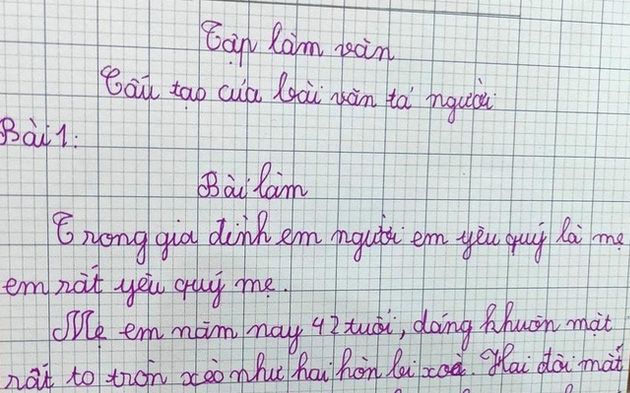 Tập làm văn
Cấu tạo của bài văn tả người
Bài 1:
Bài làm
Trong gia đình em người em yêu quý là mẹ
em rất yêu quý mẹ.
Mẹ em năm nay 42 tuổi, dáng khuôn mặt
rất to tròn xoè như hai hòn bi xoà. Hai đôi mắt